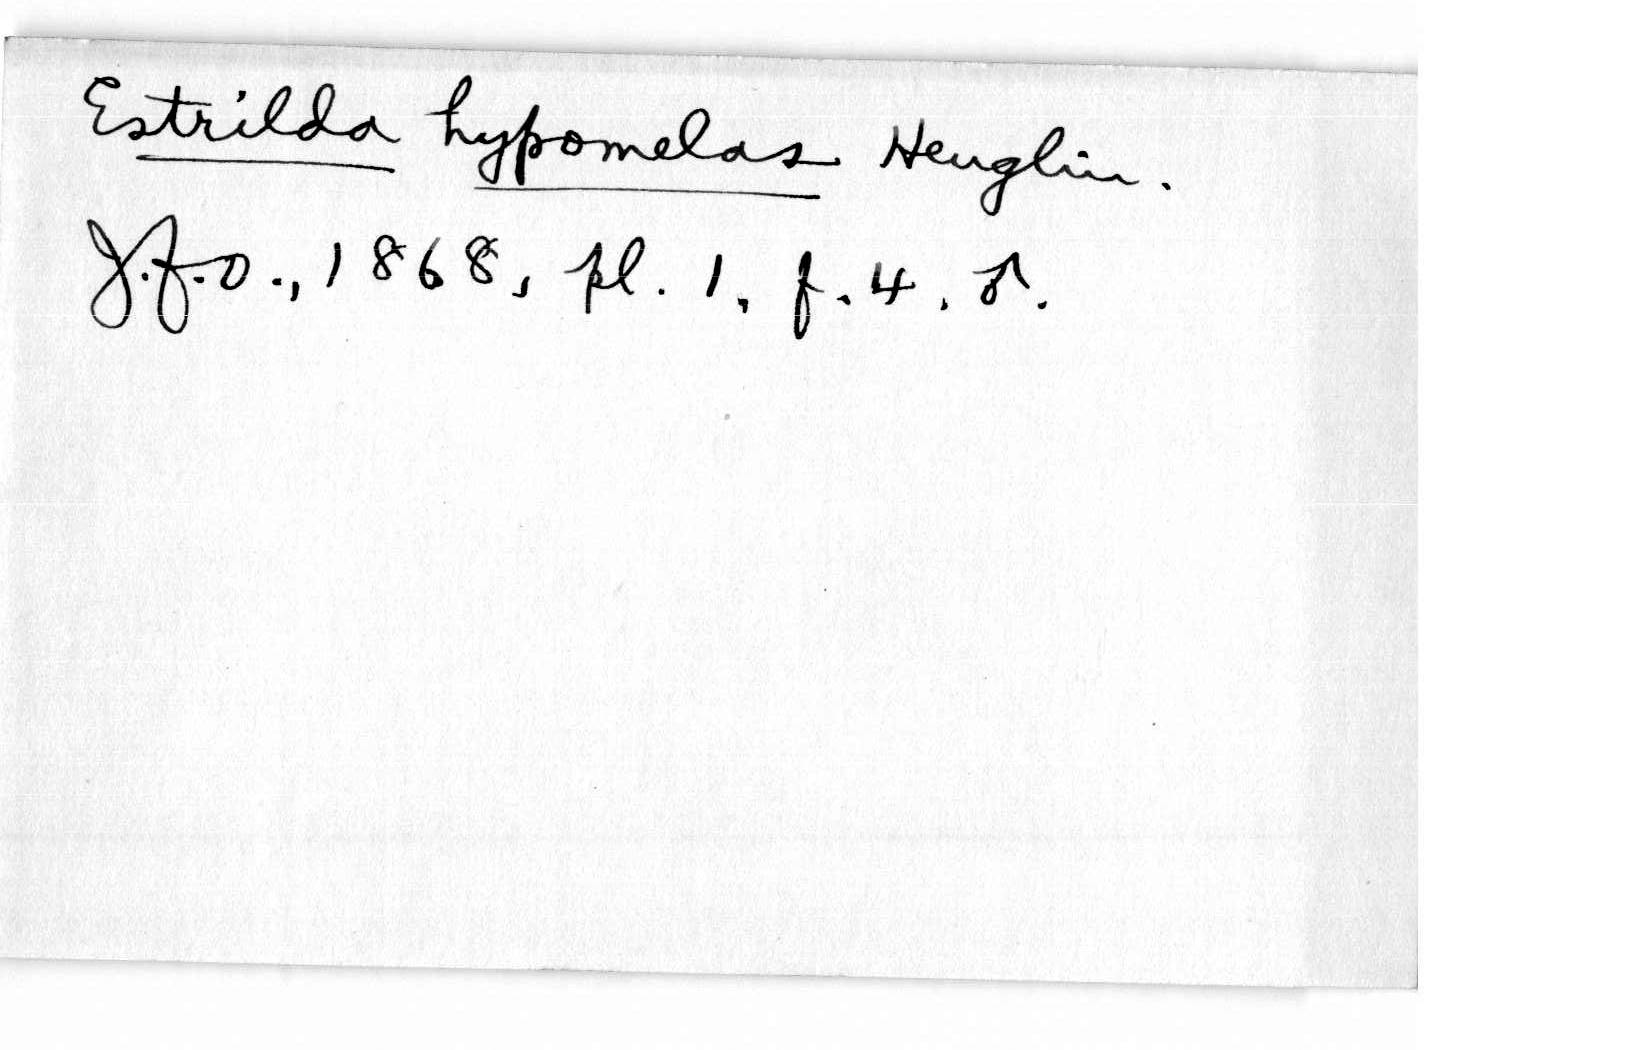 Estrilda hypomelas Heuglin.
J.f.O., 1868, pl. 1, f. 4, ♂.